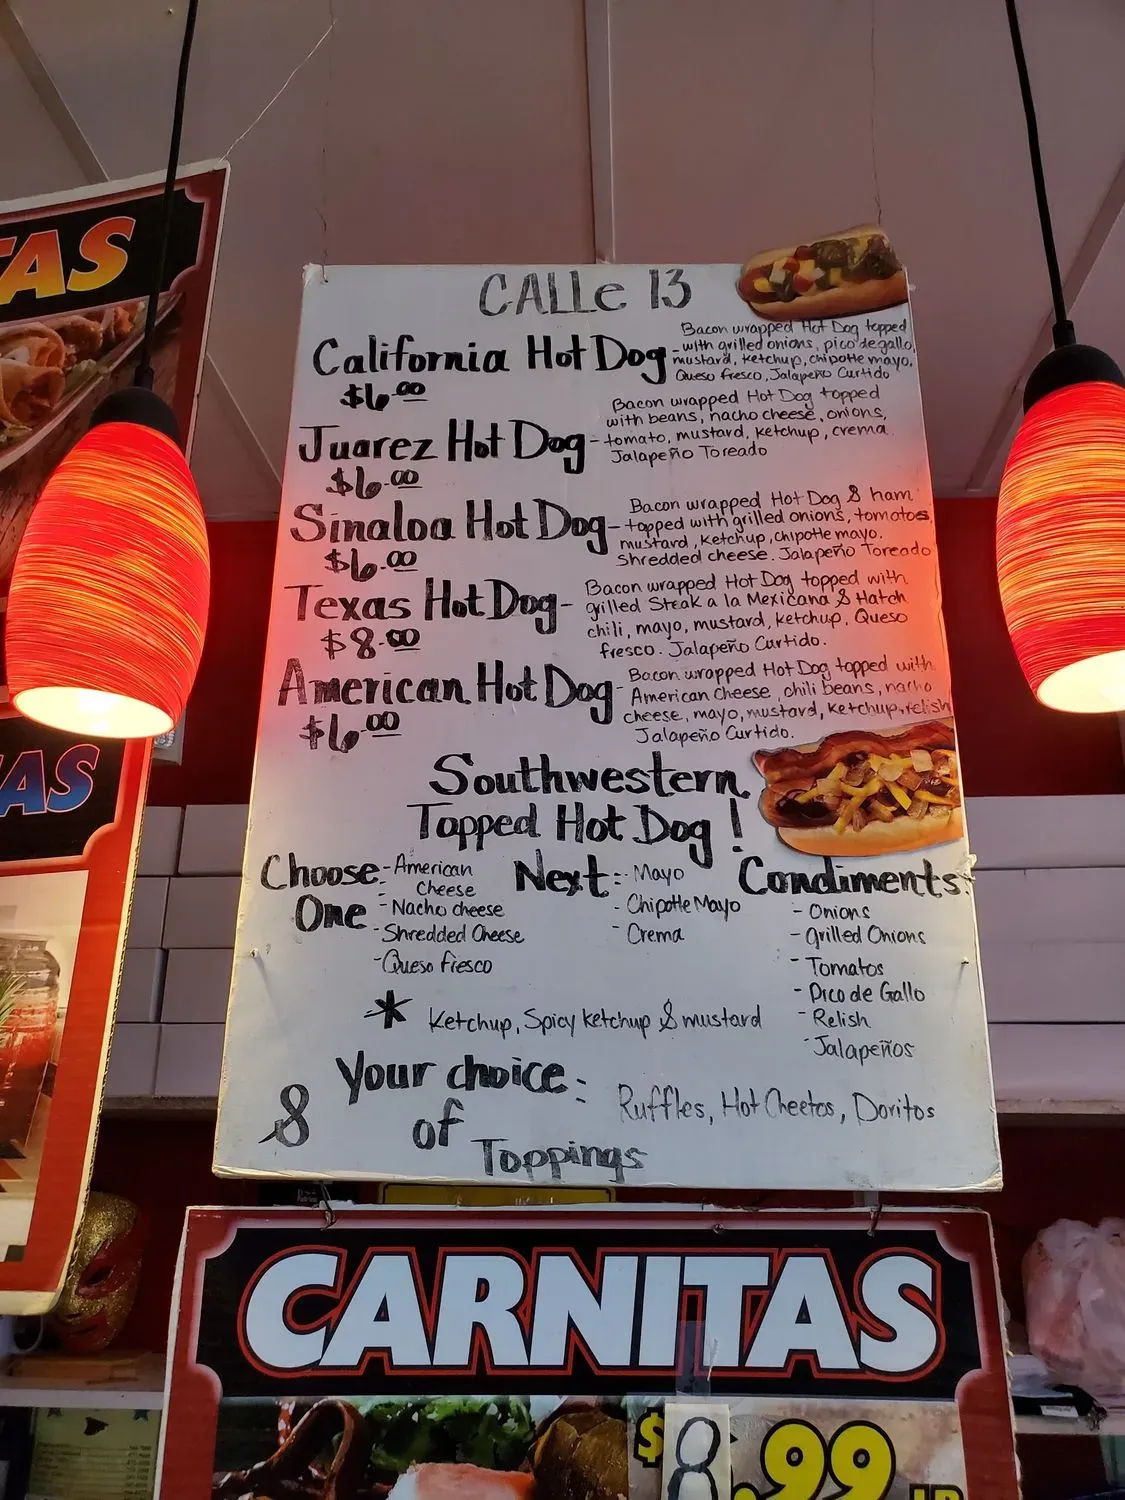 TAS
CALLe 13
California Hot Dog -
$6.00
Bacon wrapped Hot Dog topped
with grilled onions, pico de gallo,
mustard, ketchup, chipotle mayo.
Queso fresco, Jalapeño Curtido
Juarez Hot Dog -
$6.00
Bacon wrapped Hot Dog topped
with beans, nacho cheese, onions,
tomato, mustard, ketchup, crema.
Jalapeño Toreado
Sinaloa Hot Dog -
$6.00
Bacon wrapped Hot Dog & ham
topped with grilled onions, tomatos,
mustard, ketchup, chipotle mayo.
Shredded cheese. Jalapeño Toreado
Texas Hot Dog -
$8.00
Bacon wrapped Hot Dog topped with
grilled Steak a la Mexicana & Hatch
chili, mayo, mustard, ketchup. Queso
fresco. Jalapeño Curtido.
American Hot Dog -
$6.00
Bacon wrapped Hot Dog topped with
American cheese, chili beans, nacho
cheese, mayo, mustard, ketchup, relish
Jalapeño Curtido.
AS
Southwestern
Topped Hot Dog!
Choose
One
- American
Cheese
- Nacho cheese
- Shredded Cheese
- Queso fresco
Next:
- Mayo
- Chipotle Mayo
- Crema
Condiments:
- Onions
- grilled Onions
- Tomatos
- Pico de Gallo
- Relish
- Jalapeños
* Ketchup, Spicy ketchup & mustard
& Your choice:
of
Toppings
Ruffles, Hot Cheetos, Doritos
CARNITAS
$8.99
LB